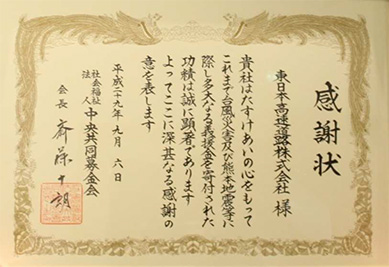 感謝状
東日本高速道路株式会社 様
貴社はたすけあいの心をもって
これまで台風災害及び熊本地震等に
際し多大なる義援金を寄付された
功績は誠に顕著であります
よってここに深甚なる感謝の
意を表します
平成二十九年九月 六日
社会福祉法人 中央共同募金会
会長 斎藤十朗